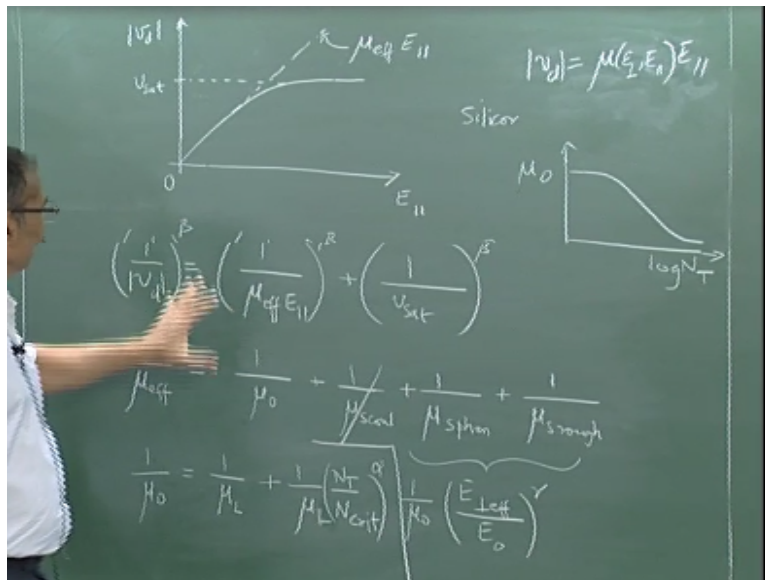 |v_d|
μ_eff E_||
v_sat
0
E_||
|v_d| = μ(E_⊥, E_||) E_||
Silicon
μ_0
log N_T
(1/|v_d|)^β = (1/(μ_eff E_||))^β + (1/v_sat)^β
1/μ_eff = 1/μ_0 + 1/μ_scoul + 1/μ_sphon + 1/μ_srough
1/μ_0 = 1/μ_L + 1/μ_L (N_T/N_crit)^α
1/μ_0 (E_⊥eff/E_0)^γ